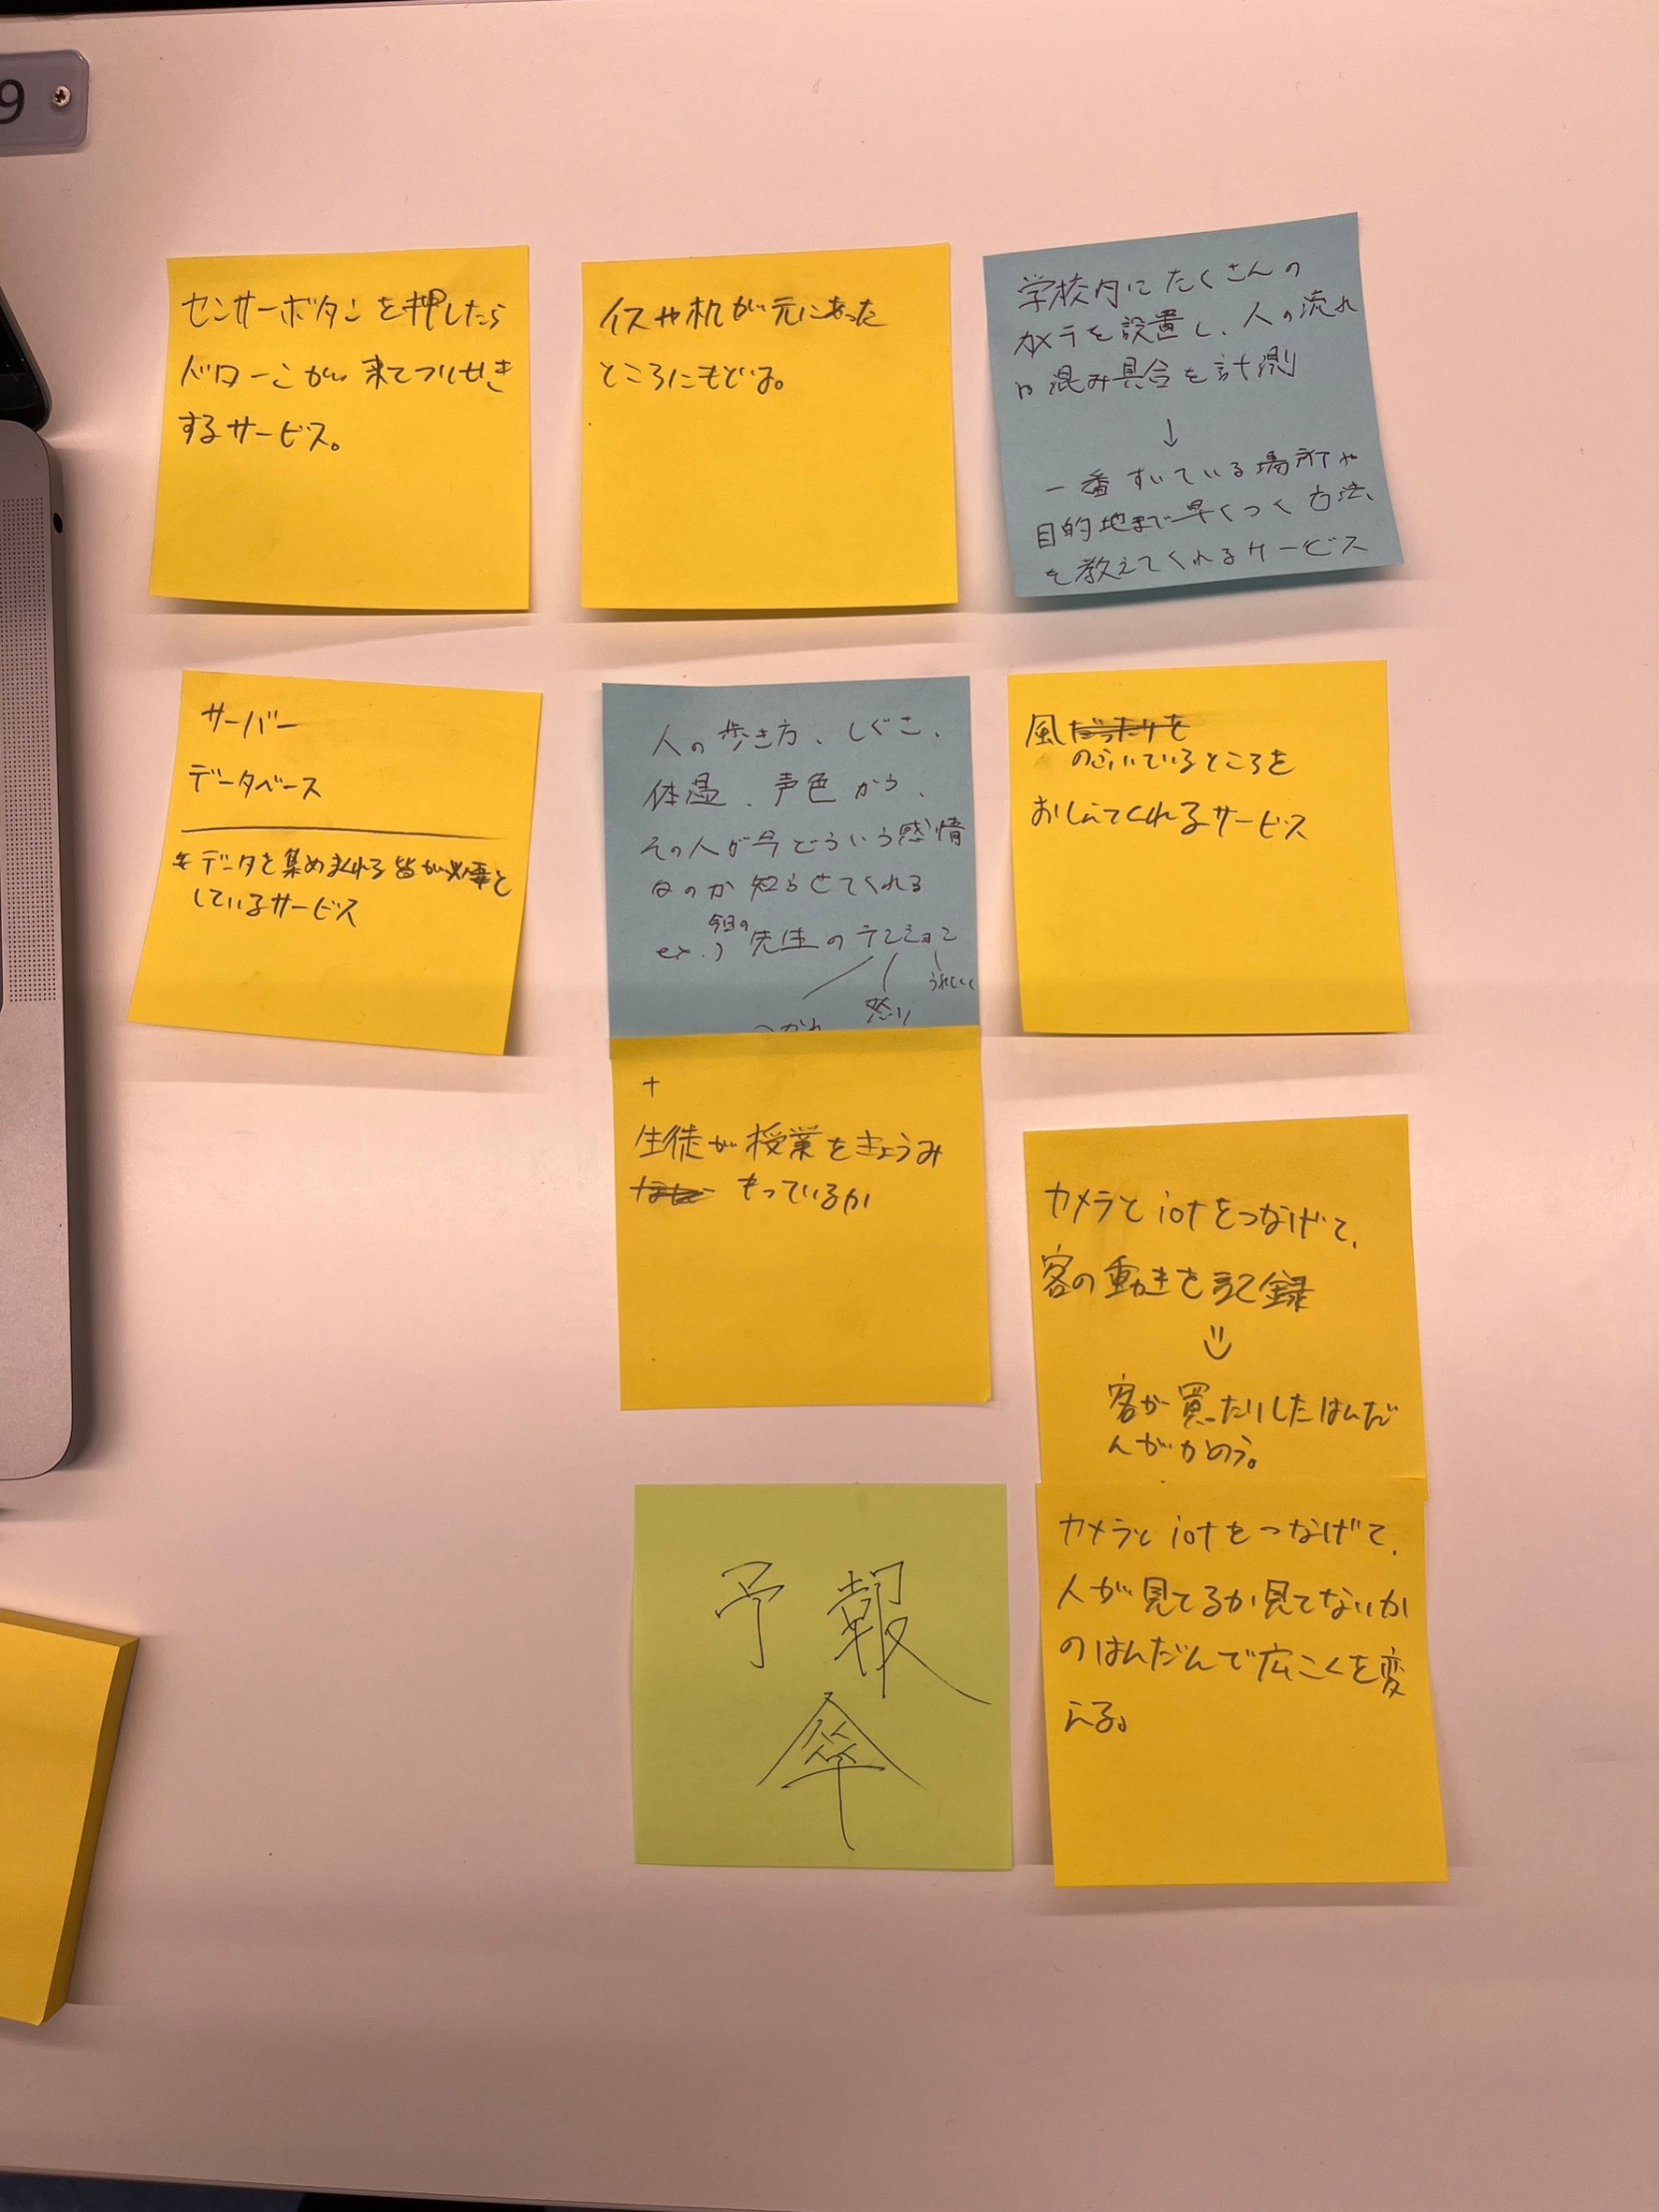 9
センサーボタンを押したら
ドローンが 来てついせき
するサービス。
イスや机が元にあった
ところにもどる。
学校内にたくさんの
カメラを設置し、人の流れ
や混み具合を計測
↓
一番すいている場所や
目的地まで早くつく方法
を教えてくれるサービス
サーバー
データベース
データを集めまくれる皆が必要と
しているサービス
人の歩き方、しぐさ、
体温、声色から、
その人が今どういう感情
なのか知らせてくれる
ex.) 今日の先生のテンション
つかれ 怒り うれしい
風
のふいているところを
おしえてくれるサービス
+
生徒が授業をきょうみ
もっているか
カメラとiotをつなげて、
客の動きを記録
客が買ったりしたはんだ
んがかのう。
予報
傘
カメラとiotをつなげて、
人が見てるか見てないか
のはんだんで広こくを変
える。